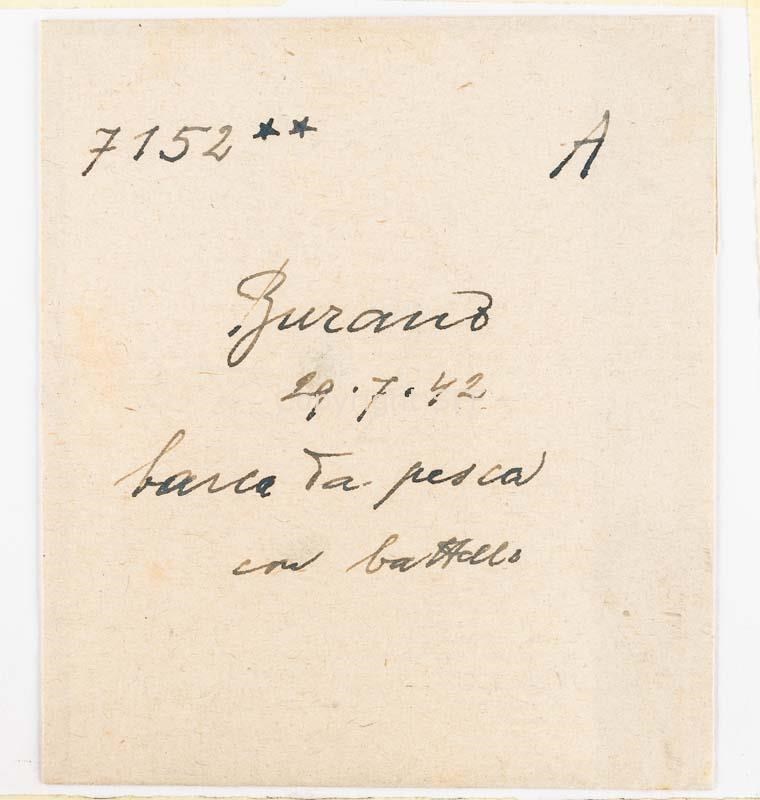 7152** A
Burano
29.7.42
barca da pesca
con battello